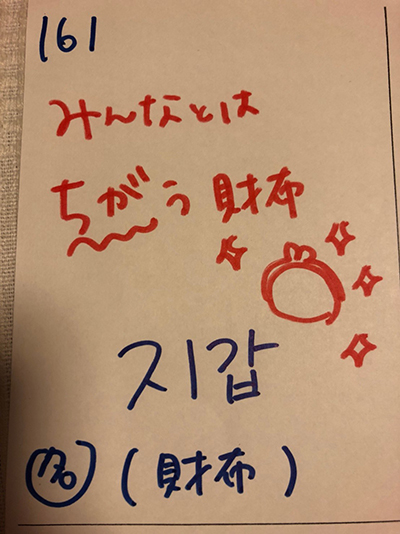 161
みんなとは
ちがう財布
지갑
名 (財布)